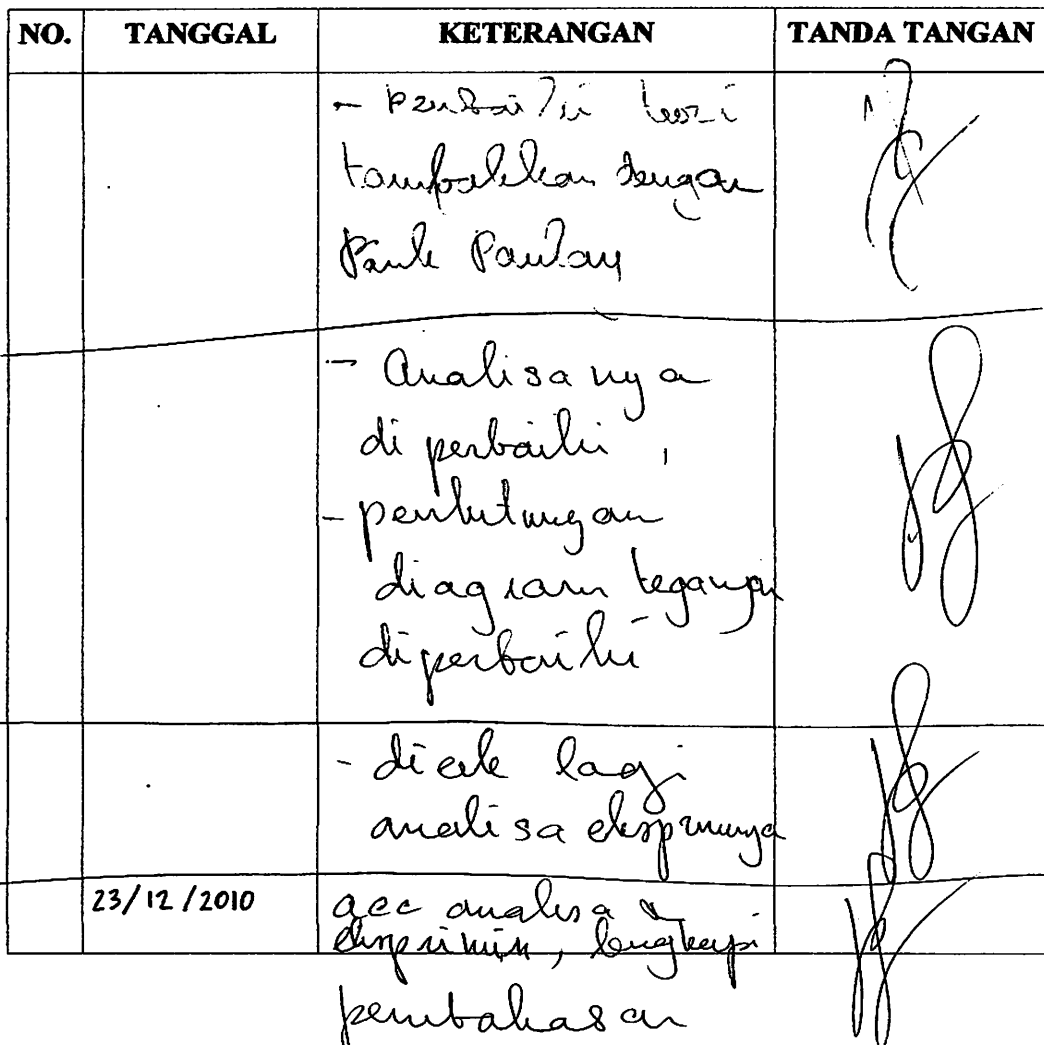 NO. TANGGAL KETERANGAN TANDA TANGAN
- Perbaiki teori
tambahkan dengan
- Analisa nya
di perbaiki,
- perhitungan
diagram tegangan
diperbaiki
- dicek lagi
analisa eksprmnya
23/12/2010 acc analisa &
eksprimin, lengkapi
pembahasan